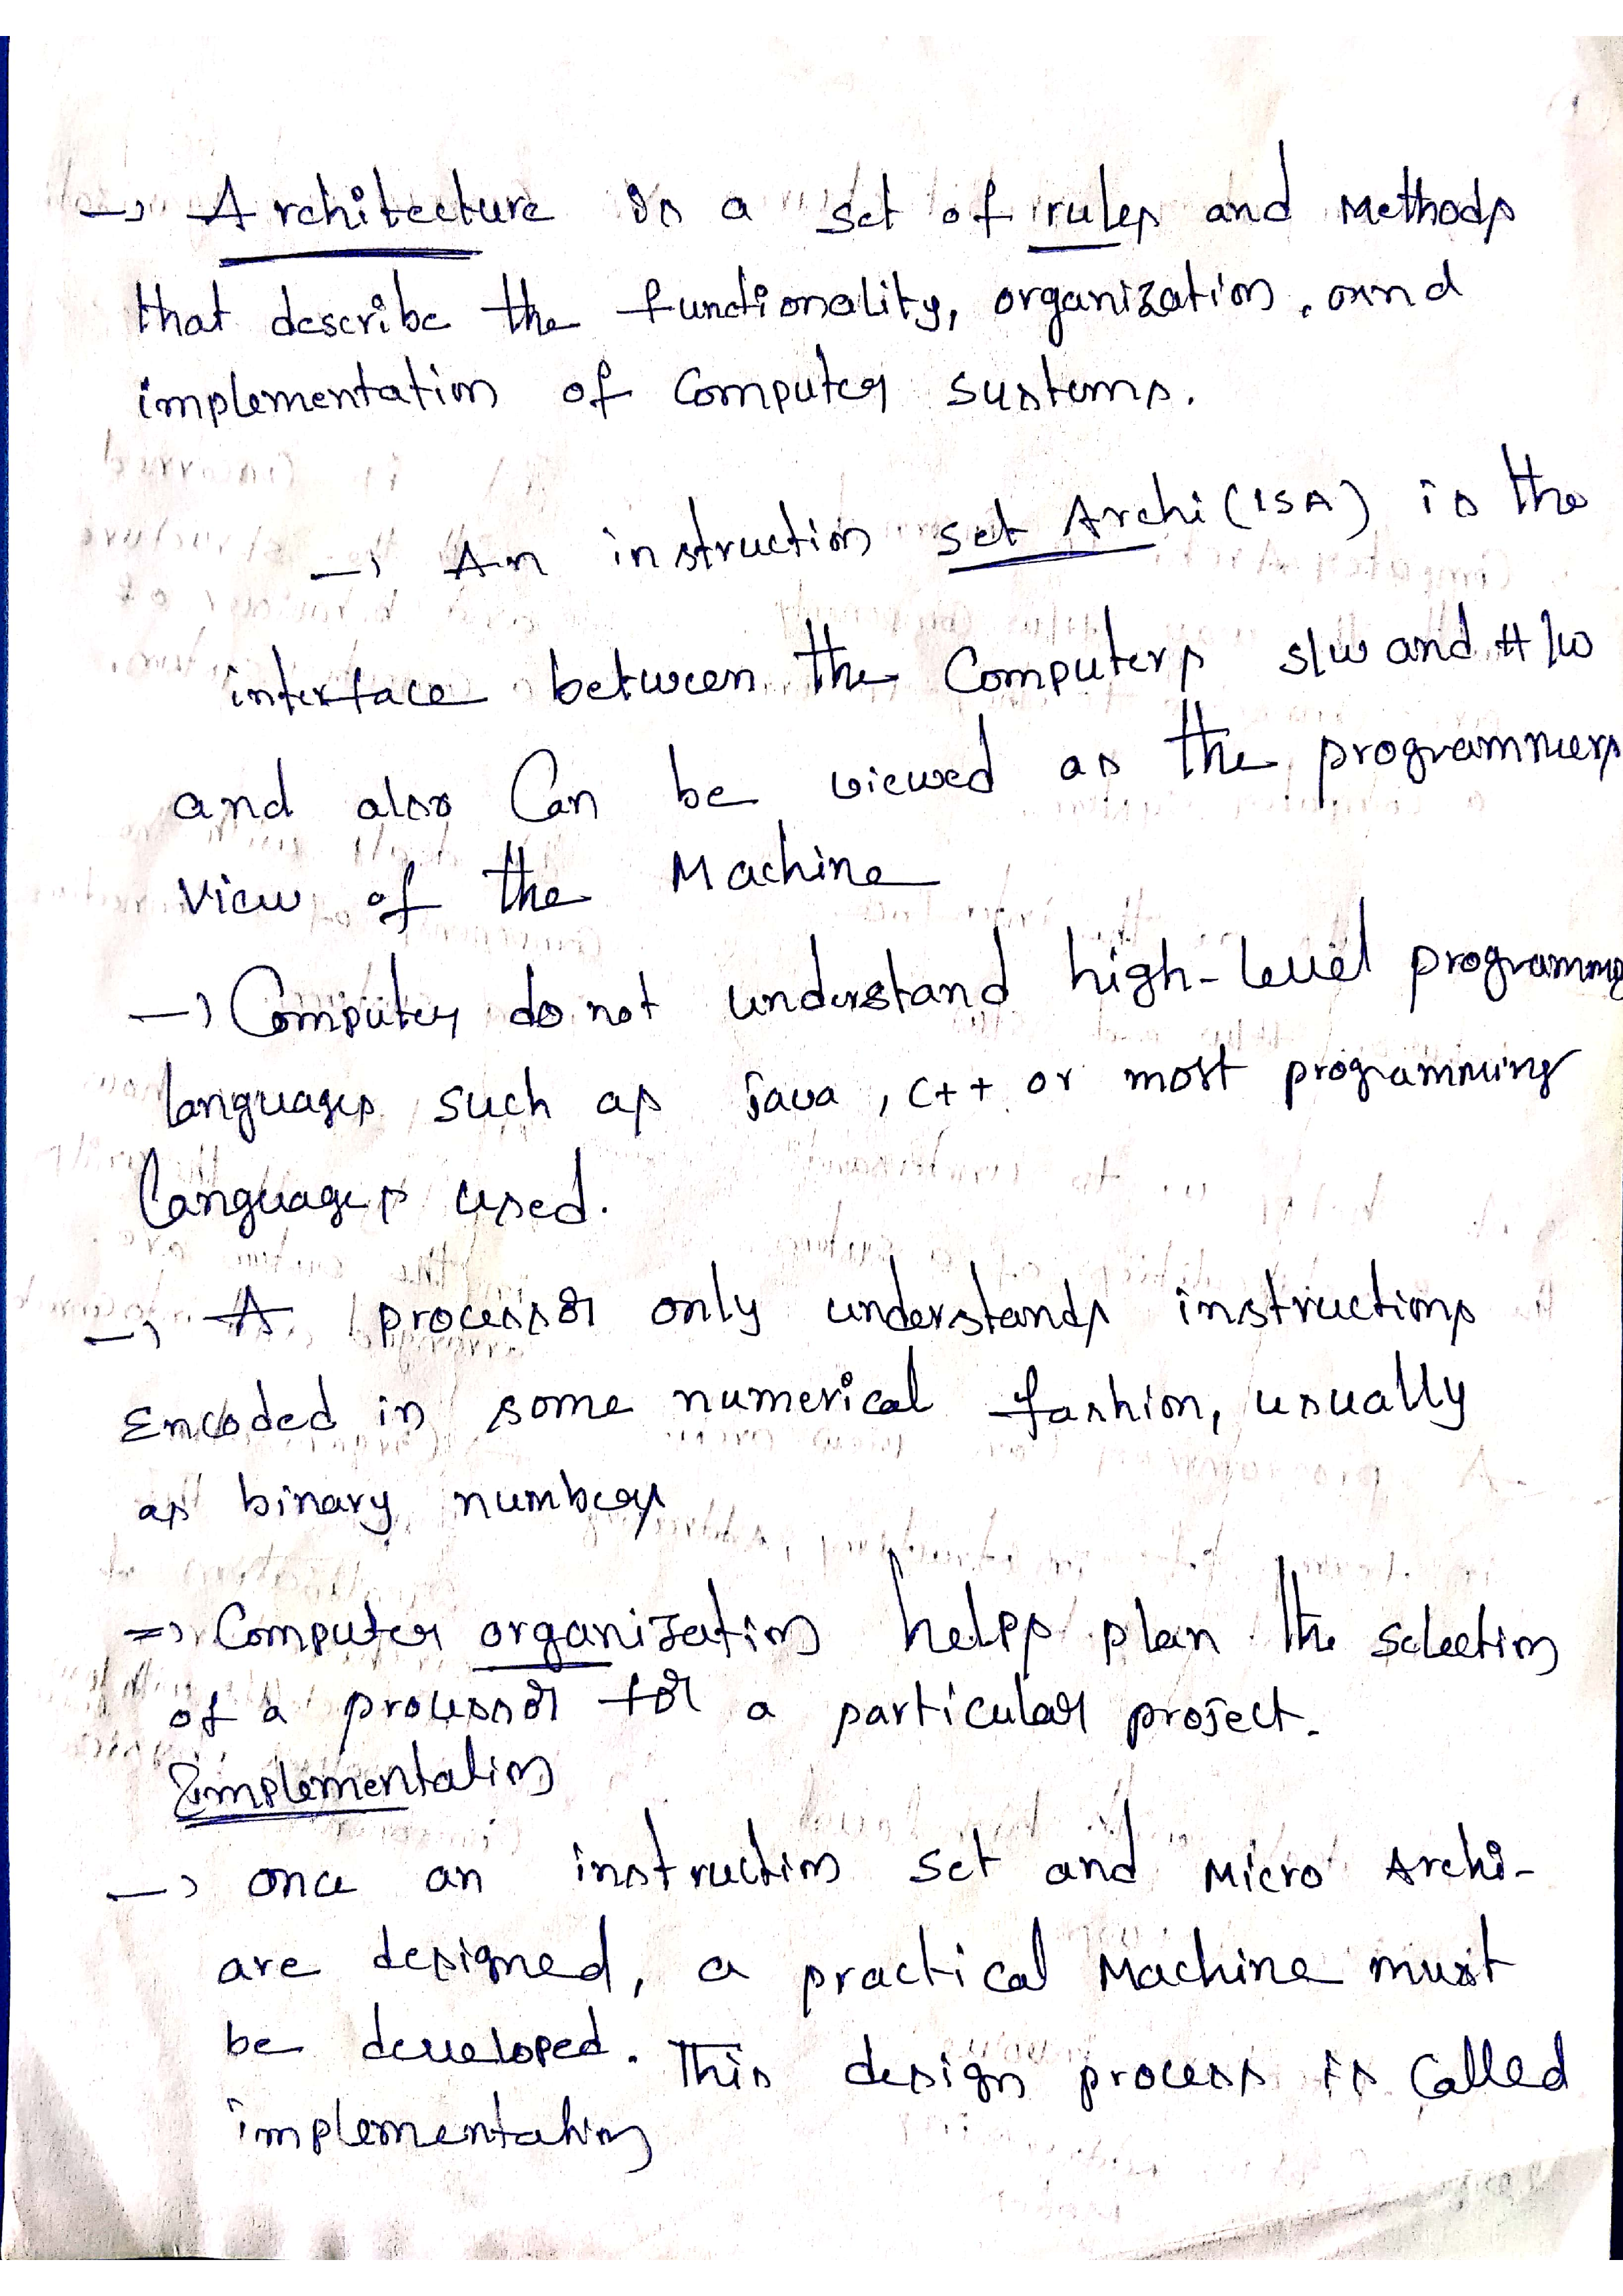 → Architecture is a set of rules and Methods
that describe the functionality, organization, and
implementation of Computer systems.
→ An instruction set Archi (ISA) is the
interface between the Computers s/w and H/w
and also Can be viewed as the programmers
view of the Machine
→ Computer do not understand high-level programming
languages such as java, C++ or most programming
languages used.
→ A processor only understands instructions
Encoded in some numerical fashion, usually
as binary numbers
⇒ Computer organization helps plan the selection
of a processor for a particular project.
Implementation
→ once an instruction set and Micro Archi-
are designed, a practical Machine must
be developed. This design process is Called
implementation